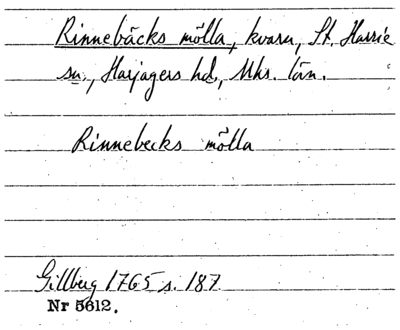 Rinnebäcks mölla, kvarn, St. Harrie
sn., Harjagers hd, Mhs. län.
Rinnebecks mölla
Gillberg 1765 s. 187
Nr 5612.